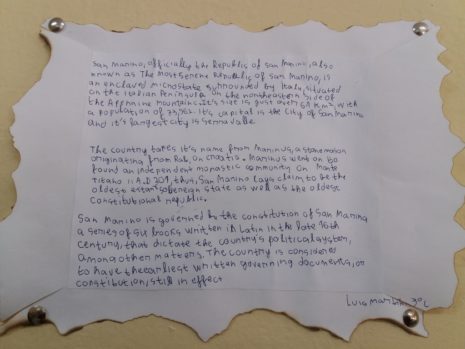 San Marino, officially the Republic of San Marino, also
known as The Most Serene Republic of San Marino, is
an enclaved microstate surrounded by Italy, situated
on the Italian Peninsula on the northeastern side of
the Appenine Mountains. It's size is just over 61 km², with
a population of It's capital is the City of San Marino
and it's largest city is Serravalle
The country takes it's name from Marinus, a stonemason
originating from Rab, in Croatia. Marinus went on to
found an independent monastic community on Monte
Titano in A.D 301, thus, San Marino lays claim to be the
oldest extant sovereign state as well as the oldest
Constitutional republic.
San Marino is governed by the constitution of San Marino
a series of six books written in Latin in the late 16th
century, that dictate the country's political system,
among other matters. The country is considered
to have the earliest written governing documents, or
constitution, still in effect
Luca